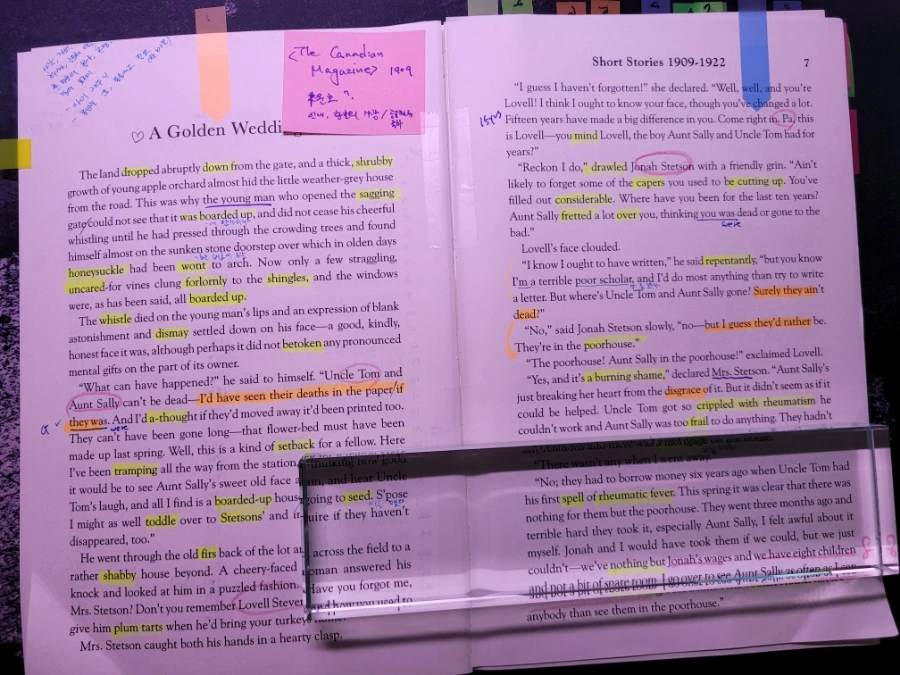 <The Canadian
Magazine> 1909
A Golden Weddin
The land dropped abruptly down from the gate, and a thick, shrubby
growth of young apple orchard almost hid the little weather-grey house
from the road. This was why the young man who opened the sagging
gate could not see that it was boarded up, and did not cease his cheerful
whistling until he had pressed through the crowding trees and found
himself almost on the sunken stone doorstep over which in olden days
honeysuckle had been wont to arch. Now only a few straggling,
uncared-for vines clung forlornly to the shingles, and the windows
were, as has been said, all boarded up.
The whistle died on the young man's lips and an expression of blank
astonishment and dismay settled down on his face—a good, kindly,
honest face it was, although perhaps it did not betoken any pronounced
mental gifts on the part of its owner.
"What can have happened?" he said to himself. "Uncle Tom and
Aunt Sally can't be dead—I'd have seen their deaths in the paper if
they was. And I'd a-thought if they'd moved away it'd been printed too.
were
They can't have been gone long—that flower-bed must have been
made up last spring. Well, this is a kind of setback for a fellow. Here
I've been tramping all the way from the station, thinking how good
it would be to see Aunt Sally's sweet old face again, and hear Uncle
Tom's laugh, and all I find is a boarded-up house going to seed. S'pose
I might as well toddle over to Stetsons' and inquire if they haven't
disappeared, too."
He went through the old firs back of the lot across the field to a
rather shabby house beyond. A cheery-faced woman answered his
knock and looked at him in a puzzled fashion. Have you forgot me,
Mrs. Stetson? Don't you remember Lovell Steve and how you used to
give him plum tarts when he'd bring your turkeys home?
Mrs. Stetson caught both his hands in a hearty clasp.
Short Stories 1909-1922 7
"I guess I haven't forgotten!" she declared. "Well, well, and you're
Lovell! I think I ought to know your face, though you've changed a lot.
Fifteen years have made a big difference in you. Come right in. Pa, this
is Lovell—you mind Lovell, the boy Aunt Sally and Uncle Tom had for
years?"
"Reckon I do," drawled Jonah Stetson with a friendly grin. "Ain't
likely to forget some of the capers you used to be cutting up. You've
filled out considerable. Where have you been for the last ten years?
Aunt Sally fretted a lot over you, thinking you was dead or gone to the
were
bad."
Lovell's face clouded.
"I know I ought to have written," he said repentantly, "but you know
I'm a terrible poor scholar, and I'd do most anything than try to write
a letter. But where's Uncle Tom and Aunt Sally gone? Surely they ain't
dead?"
"No," said Jonah Stetson slowly, "no—but I guess they'd rather be.
They're in the poorhouse."
"The poorhouse! Aunt Sally in the poorhouse!" exclaimed Lovell.
"Yes, and it's a burning shame," declared Mrs. Stetson. "Aunt Sally's
just breaking her heart from the disgrace of it. But it didn't seem as if it
could be helped. Uncle Tom got so crippled with rheumatism he
couldn't work and Aunt Sally was too frail to do anything. They hadn't
"There wasn't any when I went away."
"No; they had to borrow money six years ago when Uncle Tom had
his first spell of rheumatic fever. This spring it was clear that there was
nothing for them but the poorhouse. They went three months ago and
terrible hard they took it, especially Aunt Sally, I felt awful about it
myself. Jonah and I would have took them if we could, but we just
couldn't—we've nothing but Jonah's wages and we have eight children
and not a bit of spare room. I go over to see Aunt Sally as often as I can
anybody than see them in the poorhouse."